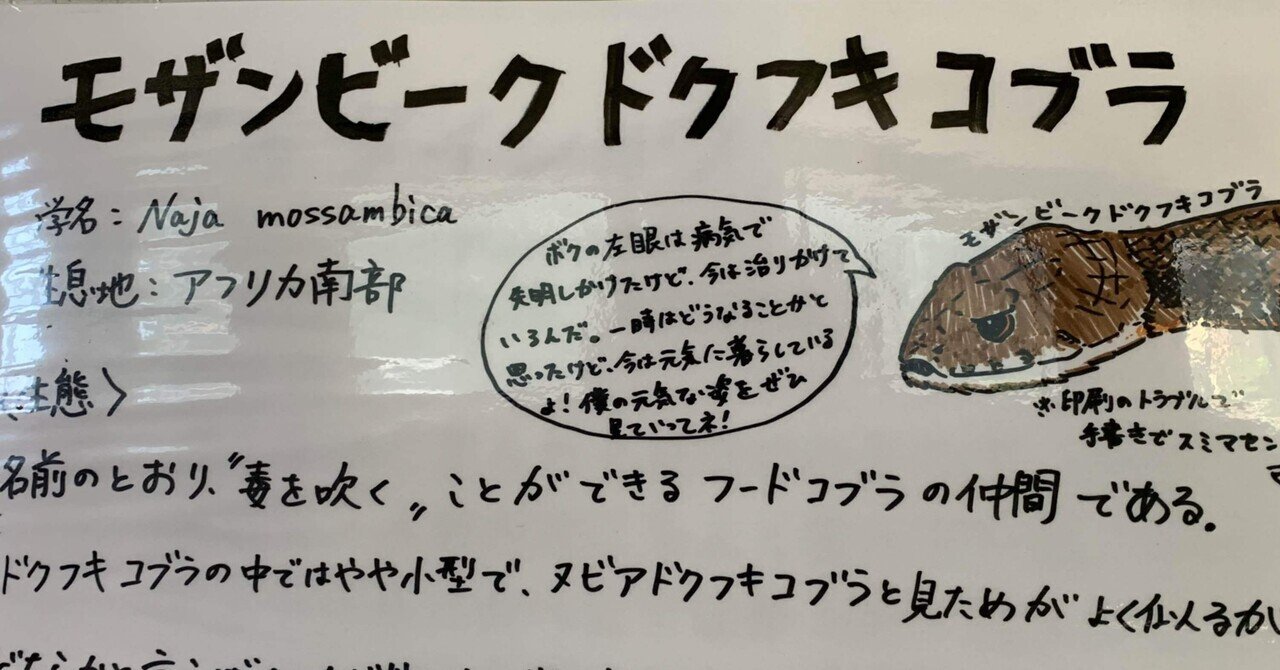 モザンビークドクフキコブラ
学名：Naja mossambica
生息地：アフリカ南部
ボクの左眼は病気で
失明しかけたけど、今は治りかけて
いるんだ。一時はどうなることかと
思ったけど、今は元気に暮らしている
よ！僕の元気な姿をぜひ
見ていってネ！
モザンビークドクフキコブラ
※印刷のトラブルで
手書きでスミマセン
〈生態〉
名前のとおり、〝毒を吹く〟ことができるフードコブラの仲間である。
ドクフキコブラの中ではやや小型で、ヌビアドクフキコブラと見ためがよく似るが